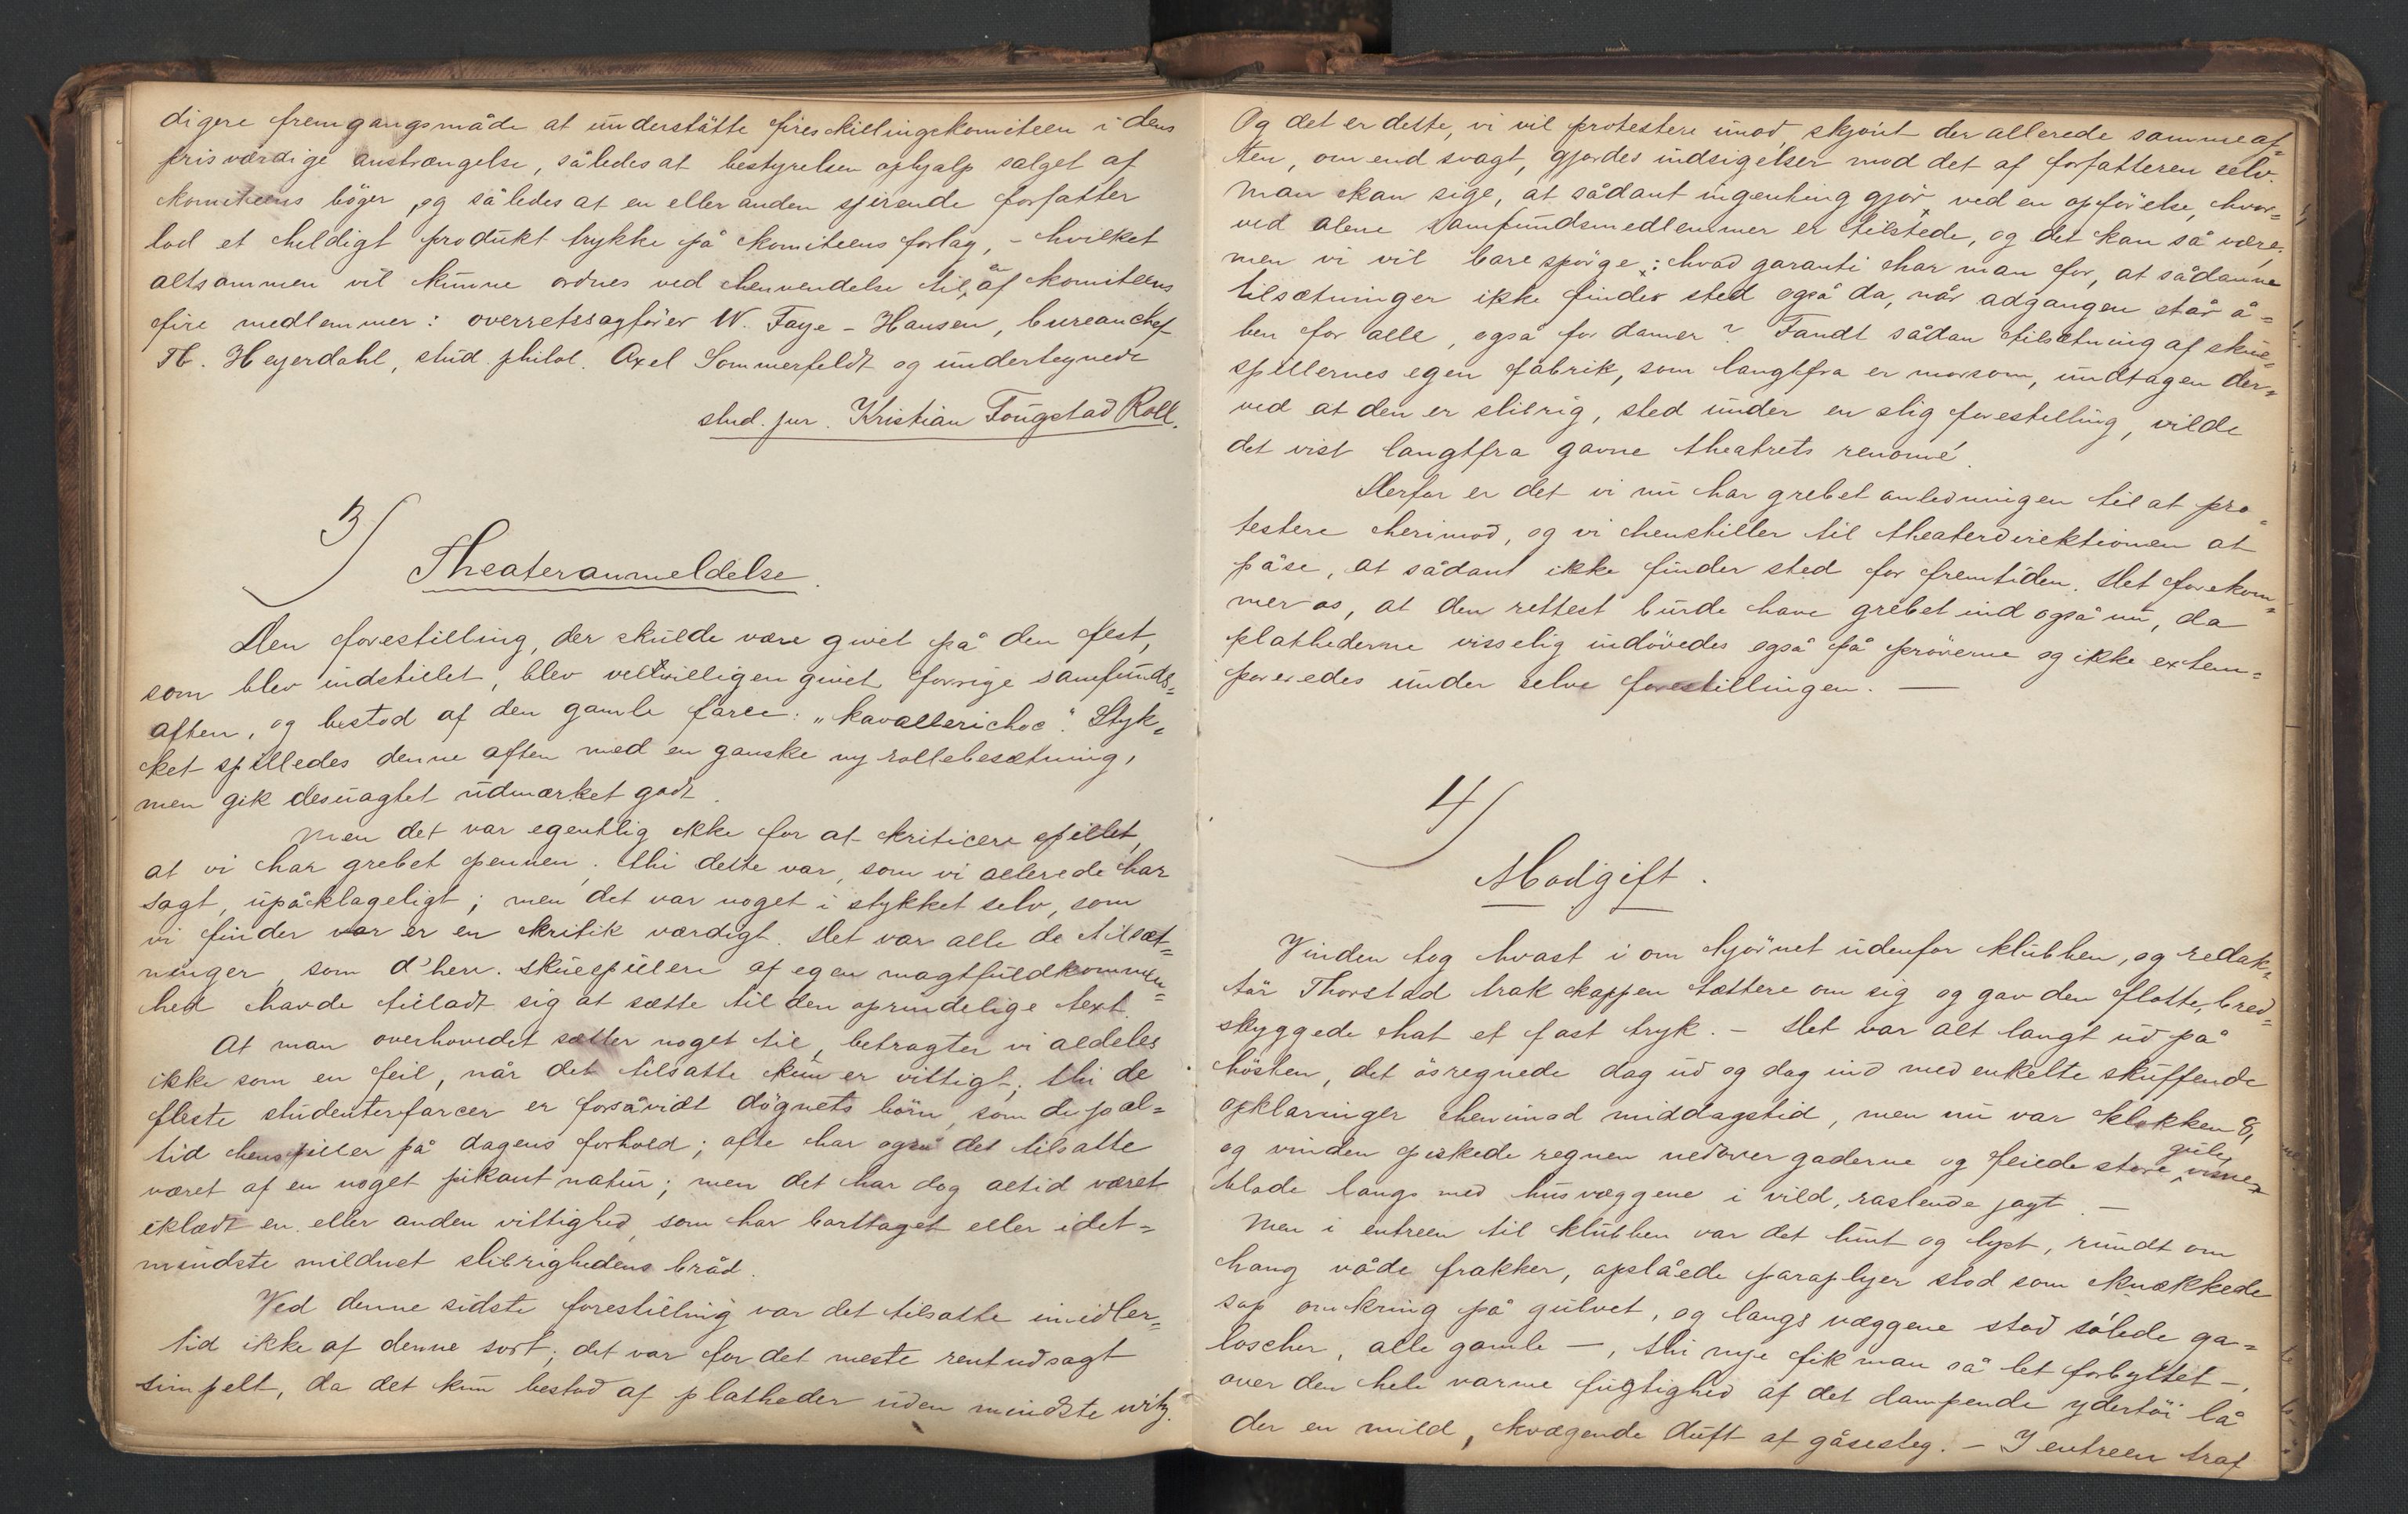 digere fremgangsmåde at understøtte fireskillingskomiteen i dens
prisværdige anstrængelse, således at bestyrelsen ophjalp salget af
komiteens bøger, og således at en eller anden spirende forfatter
lod et heldigt produkt trykke på komiteens forlag, - hvilket
altsammen vil kunne ordnes ved henvendelse til en af komiteens
fire medlemmer: overretssagfører W. Faye-Hansen, bureauchef
Th. Heyerdahl, stud. philol. Axel Sommerfeldt og undertegnede
stud. jur. Kristian Fougstad Roll.
3/
Theateranmeldelse.
Den forestilling, der skulde være givet på den fest,
som blev indstillet, blev velvilligen givet forrige samfunds=
aften, og bestod af den gamle farce: "Kavallerichoc". Styk=
ket spilledes denne aften med en ganske ny rollebesætning,
men gik desuagtet udmærket godt.
Men det var egentlig ikke for at kriticere spillet,
at vi har grebet pennen; thi dette var, som vi allerede har
sagt, upåklageligt; men det var noget i stykket selv, som
vi finder var er en kritik værdigt. Det var alle de tilsæt=
ninger, som d'herr. skuespillere af egen magtfuldkommen=
hed havde tilladt sig at sætte til den oprindelige text.
At man overhovedet sætter noget til, betragter vi aldeles
ikke som en feil, når det tilsatte kun er vittigt; thi de
fleste studenterfarcer er forsåvidt døgnets børn, som de jo al=
tid henspiller på dagens forhold; ofte har også det tilsatte
været af en noget pikant natur; men det har dog altid været
iklædt en eller anden vittighed, som har borttaget eller idet=
mindste mildnet slibrighedens bråd.
Ved denne sidste forestilling var det tilsatte imidler=
tid ikke af denne sort; det var for det meste rentudsagt
simpelt, da det kun bestod af platheder uden mindste witz.
Og det er dette, vi vil protestere imod, skjønt der allerede sammeaf=
ten, om end svagt, gjordes indsigelser mod det af forfatteren selv.
Man kan sige, at sådant ingenting gjør, ved en opførelse, hvor=
ved alene samfundsmedlemmer er tilstede, og det kan så være;
men vi vil bare spørge: hvad garanti har man for, at sådanne
tilsætninger ikke finder sted også da, når adgangen står å=
ben for alle, også for damer? Fandt sådan tilsætning af skue=
spillernes egen fabrik, som langtfra er morsom, undtagen der=
ved at den er slibrig, sted under en slig forestilling, vilde
det vist langtfra gavne theatrets renommé.
Derfor er det vi nu har grebet anledningen til at pro=
testere herimod, og vi henstiller til theaterdirektionen at
påse, at sådant ikke finder sted for fremtiden. Det forekom=
mer os, at den rettest burde have grebet ind også nu, da
plathederne visselig indøvedes også på prøverne og ikke extem=
poreredes under selve forestillingen. —
4/
Modgift.
Vinden tog hvast i om hjørnet udenfor klubben, og redak=
tør Thorstad trak kappen tættere om sig og gav den flotte, bred=
skyggede hat et fast tryk. - Det var alt langt ud på
høsten, det øsregnede dag ud og dag ind med enkelte skuffende
opklaringer henimod middagstid, men nu var klokken 8,
og vinden piskede regnen nedover gaderne og feiede store, gule, visne
blade langs med husvæggene i vild, raslende jagt. —
Men i entreen til klubben var det lunt og lyst, rundt om
hang våde frakker, opslåede paraplyer stod som knækkede
sop omkring på gulvet, og langs væggene stod sølede ga=
loscher, alle gamle —, thi nye fik man så let forbyttet —,
over den hele varme fugtighed af det dampende ydertøi lå
der en mild, kvægende duft af gåsesteg. - I entreen traf